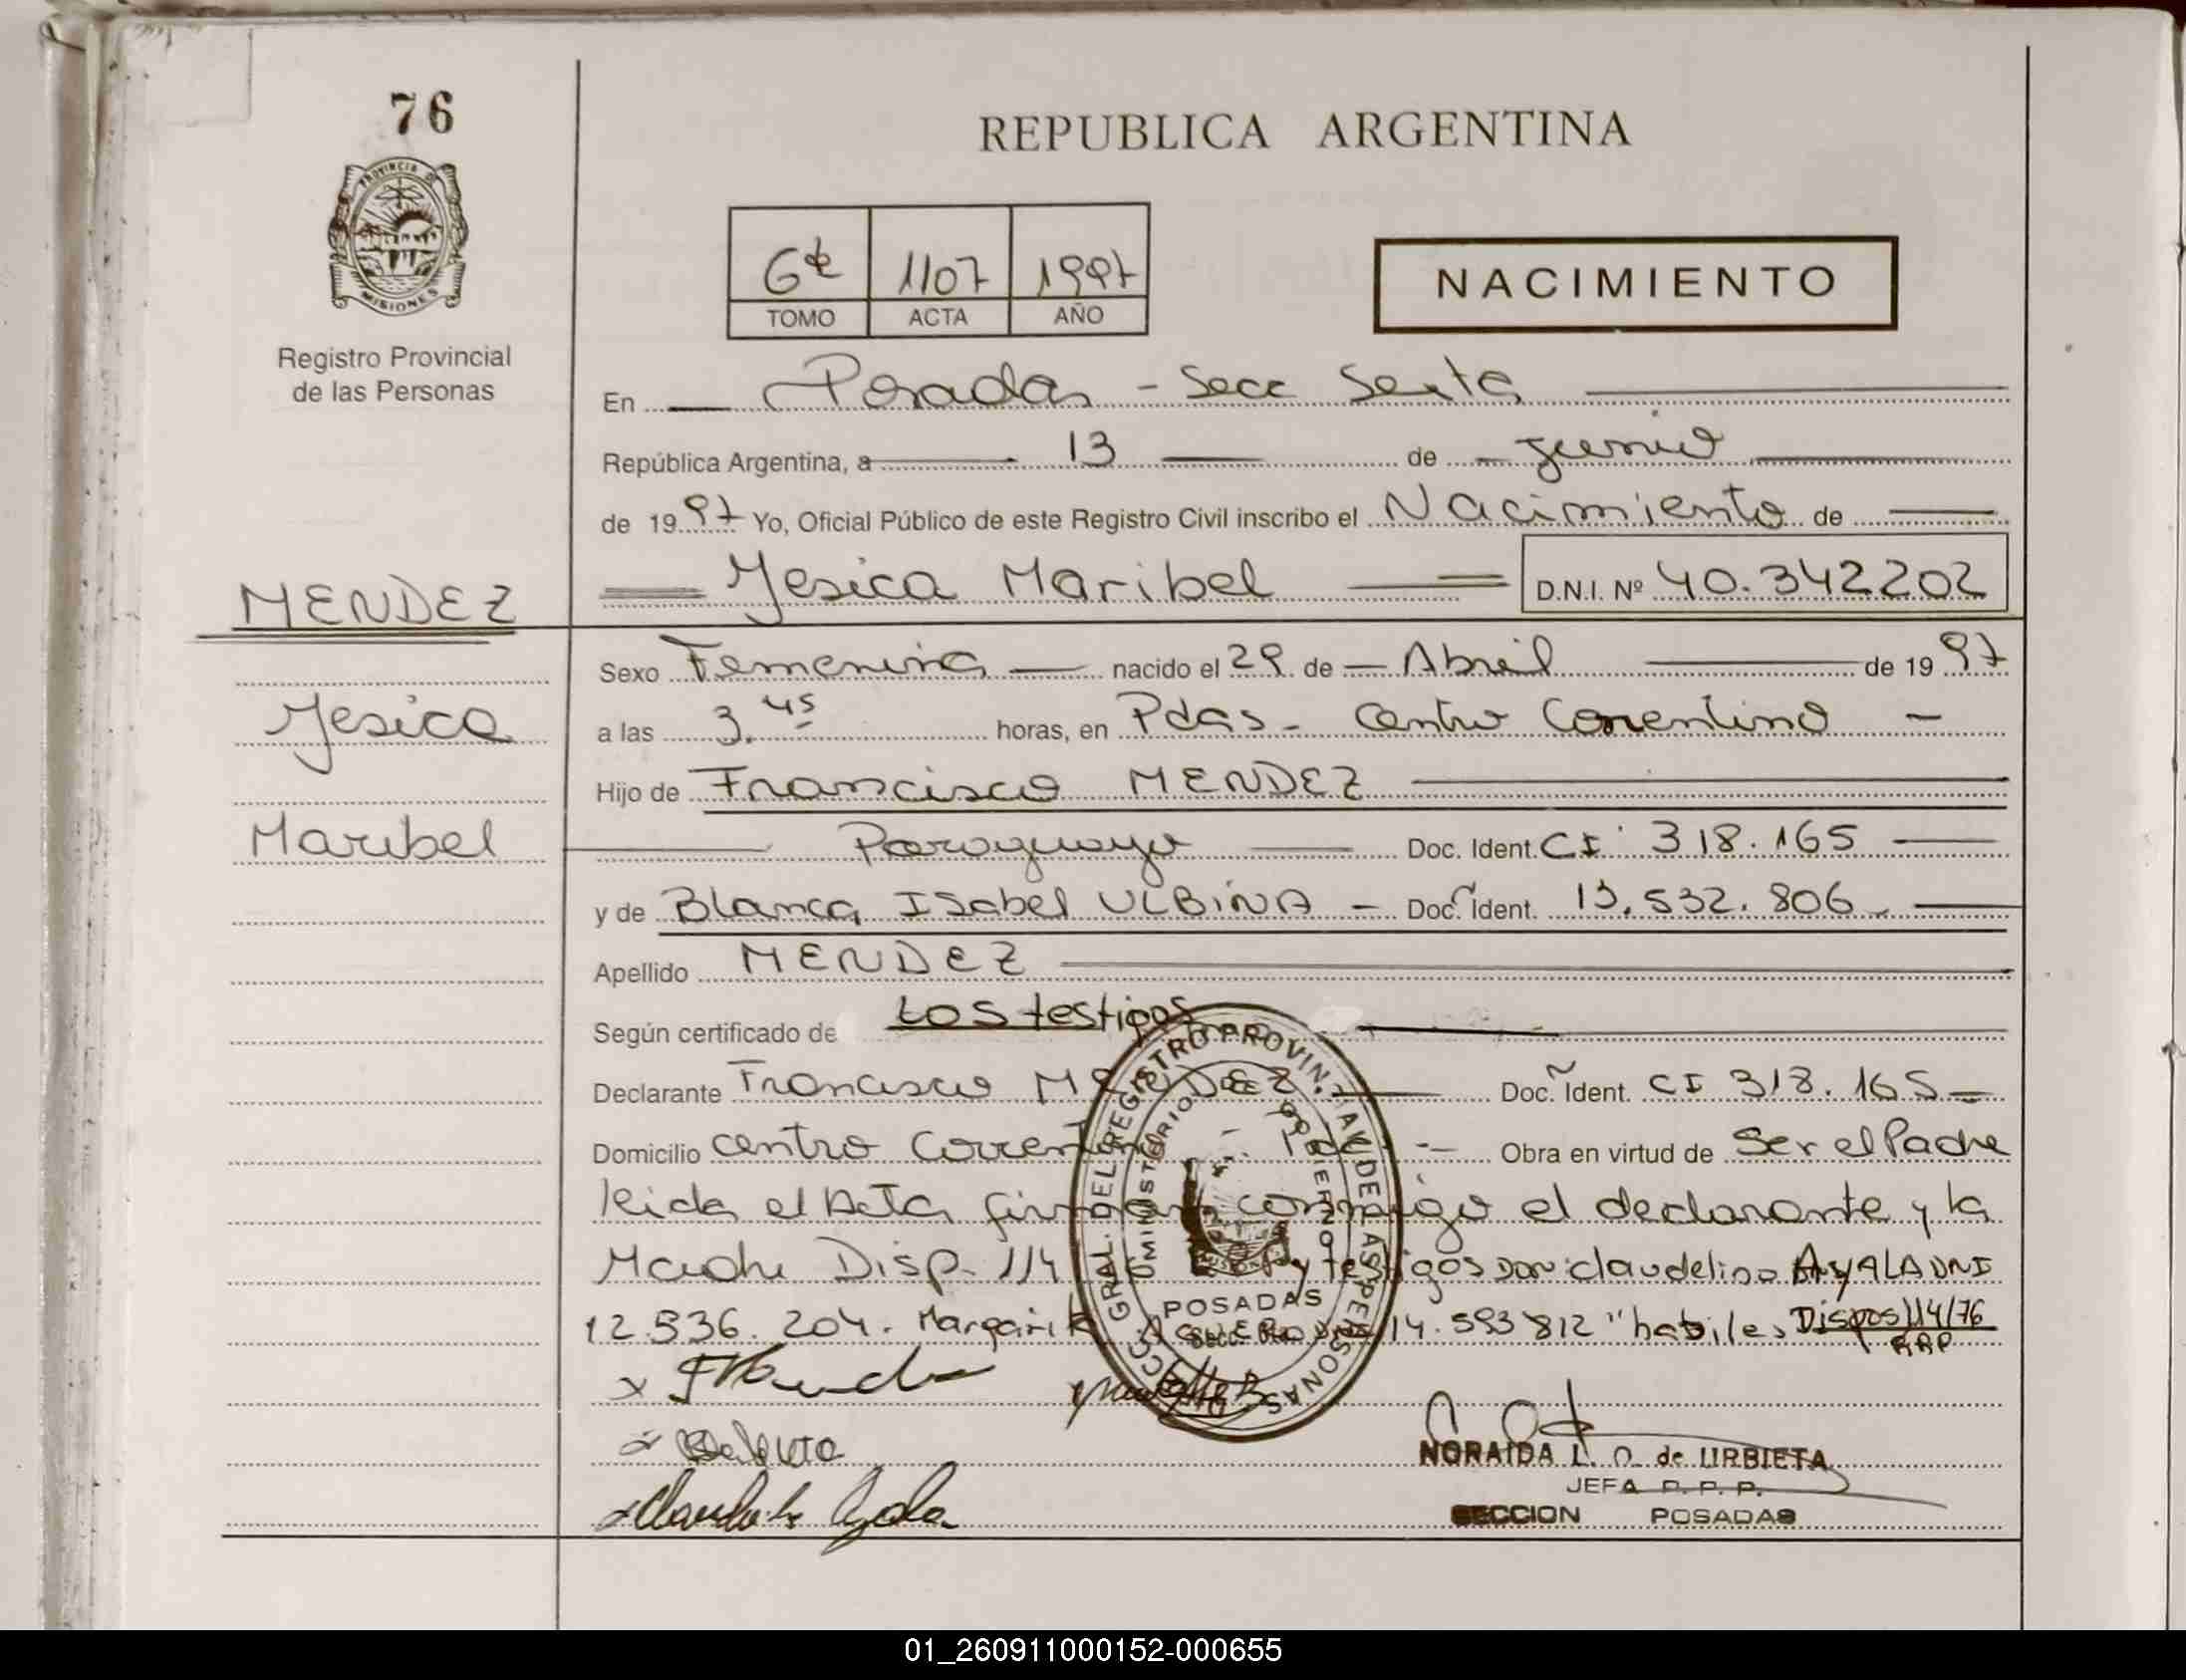 76
PROVINCIA D
MISIONES
Registro Provincial
de las Personas
REPUBLICA ARGENTINA
6ta 1107 1997
TOMO ACTA AÑO
NACIMIENTO
En Posadas - Secc Sexta
República Argentina, a 13 de junio
de 1997 Yo, Oficial Público de este Registro Civil inscribo el Nacimiento de
MENDEZ
Yesica Maribel D.N.I. Nº 40.342202
Sexo Femenina nacido el 29 de Abril de 1997
Yesica
a las 3.45 horas, en Pdas - Centro Correntino -
Hijo de Francisco MENDEZ
Maribel
Paraguayo Doc. Ident. CI 318.165
y de Blanca ISabel ULBiNA - Doc. Ident. 13.532.806
Apellido MENDEZ
Según certificado de Los testigos
Declarante Francisco MENDEZ Doc. Ident. CI 318.165
Domicilio Centro Correntino - Pdas - Obra en virtud de Ser el Padre
leida el Acta firman conmigo el declarante y la
Madre Disp. 114 y testigos Don: claudelino AyALA DNI
12.536.204. Margarita AGUERO DNI 14.593812 "habiles Dispos 114/76
RRP
GRAL. DEL REGISTRO PROVIN. AV. DE LAS PERSONAS
POSADAS
NORAIDA L. O. de URBIETA
JEFA R. P. P.
SECCION POSADAS
01_260911000152-000655